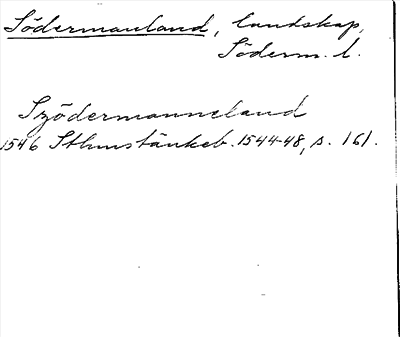 Södermanland, landskap,
Söderm. l.
Szödermanneland
1546 Sthms tänkeb. 1544-48, s. 161.